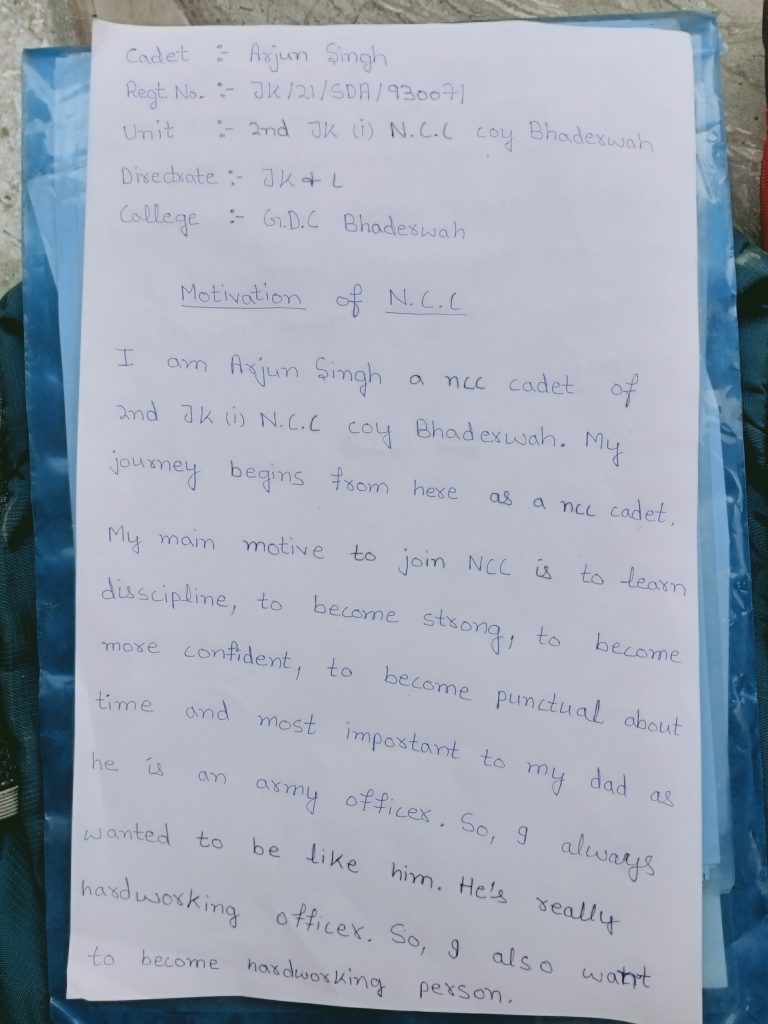 Cadet :- Arjun Singh
Regt. No. :- JK/21/SDA/930071
Unit :- 2nd JK (i) N.C.C coy Bhaderwah
Directrate :- JK & L
College :- G.D.C Bhaderwah
Motivation of N.C.C
I am Arjun Singh a ncc cadet of
2nd JK (i) N.C.C coy Bhaderwah. My
journey begins from here as a ncc cadet.
My main motive to join NCC is to learn
disscipline, to become strong, to become
more confident, to become punctual about
time and most important to my dad as
he is an army officer. So, I always
wanted to be like him. He's really
hardworking officer. So, I also want
to become hardworking person.